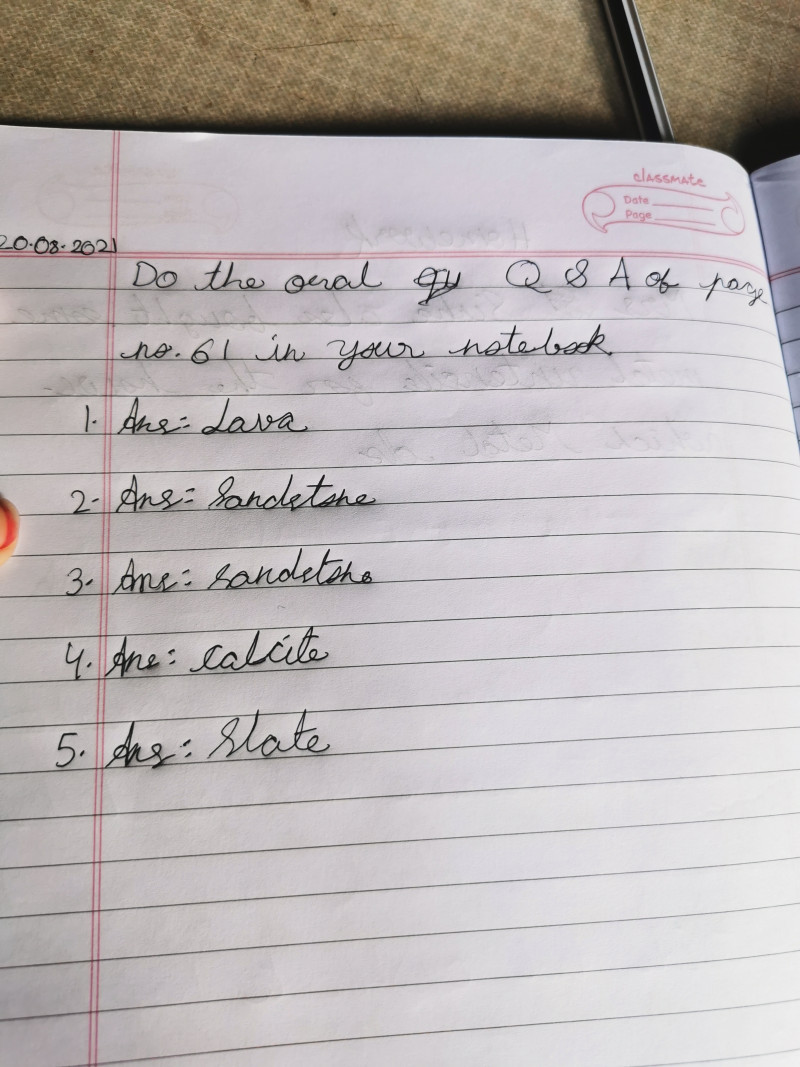 classmate
Date
Page
20.08.2021
Do the oral Q & A of page
no. 61 in your notebook.
1. Ans= Lava
2. Ans= Sandstone
3. Ans= sandstone
4. Ans= calcite
5. Ans= Slate